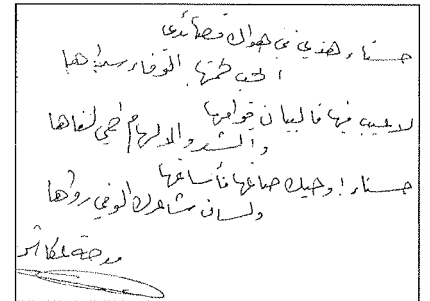 حسناء هذي في هواك قصائدي
الحب لحمتها الوفاء سداها
لا عيب فيها فالبيان قوامها
والشعر والإلهام طي لغاها
حسناء! وحيك صاغها فأساغها
ولسان شاعرك الوفي رواها
مدحة عكاش